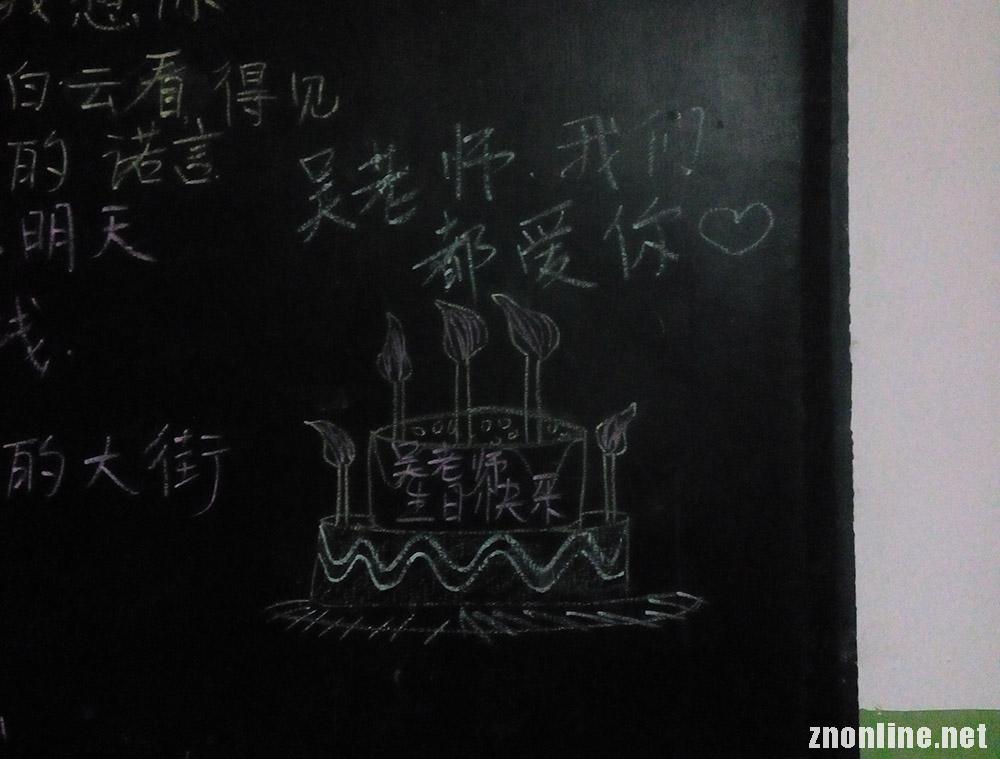 我想你
白云看得见
的诺言
明天
我
的大街
吴老师、我们
都爱你
吴老师
生日快乐
znonline.net